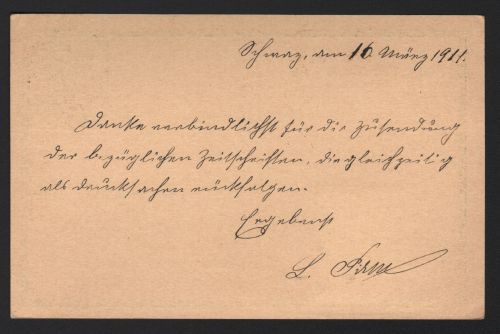 Schwaz, am 16 März 1911.
Danke verbindlichst für die Zusendung
der bezüglichen Zeitschriften, die gleichzeitig
als Drucksachen rückfolgen.
Ergebenst
L.